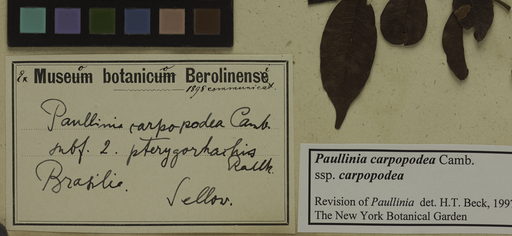 Ex Museo botanico Berolinense
1898 communicat.
Paullinia carpopodea Camb.
subf. 2. pterygorhachis
Radlk.
Brasilia.
Sellow.
Paullinia carpopodea Camb.
ssp. carpopodea
Revision of Paullinia det. H.T. Beck, 1997
The New York Botanical Garden